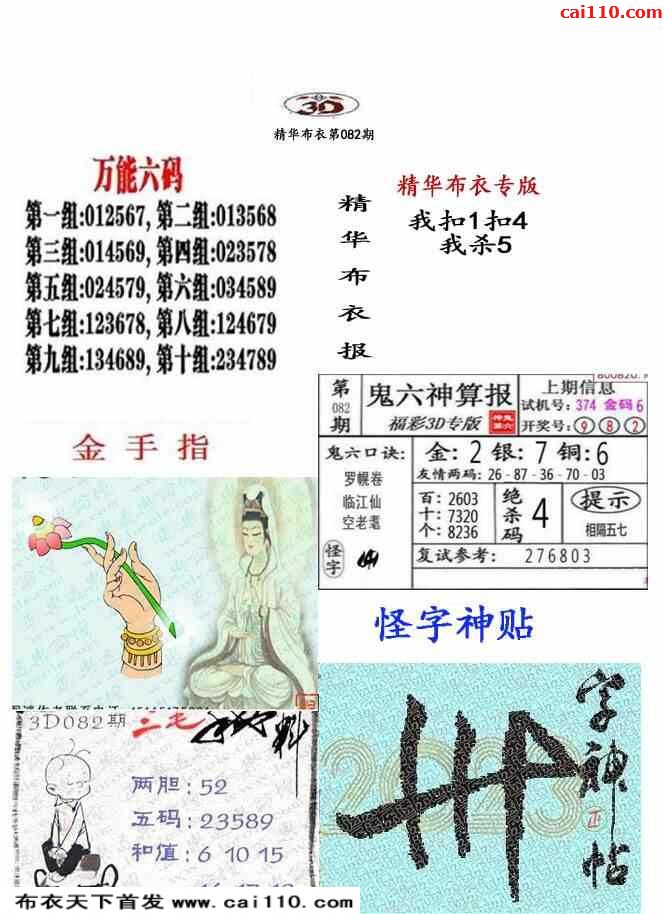 cai110.com
3D
精华布衣第082期
万能六码
第一组:012567,第二组:013568
第三组:014569,第四组:023578
第五组:024579,第六组:034589
第七组:123678,第八组:124679
第九组:134689,第十组:234789
精华布衣报
精华布衣专版
我扣1扣4
我杀5
第082期
鬼六神算报
福彩3D专版
上期信息
试机号:374 金码6
开奖号:982
鬼六口诀:
罗幌卷
临江仙
空老耄
怪字
金:2 银:7 铜:6
友情两码:26-87-36-70-03
百:2603
十:7320
个:8236
绝杀码
4
提示
相隔五七
复试参考: 276803
金手指
怪字神贴
3D082期
二毛
料
两胆:52
五码:23589
和值:6 10 15
字神帖
2023
布衣天下首发 www.cai110.com